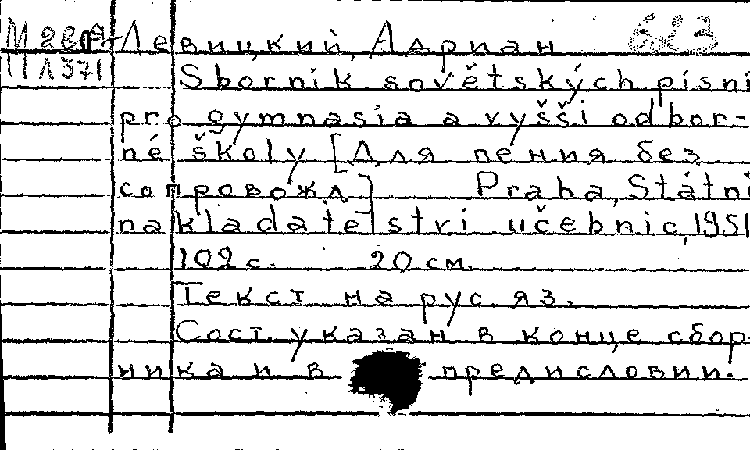 Левицкий, Адриан 623
П 1371
Sborník sovětských písní
pro gymnasia a vyšší odbor-
né školy [Для пения без
сопровожд] Praha, Státní
nakladatelství učebnic, 1951
102 с. 20 см.
Текст на рус. яз.
Сост. указан в конце сбор-
ника и в предисловии.